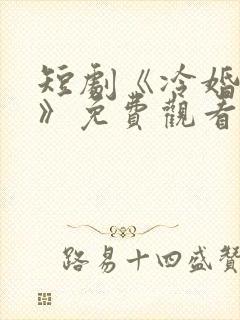 短劇《冷婚
》免費觀看
路易十四盛贊